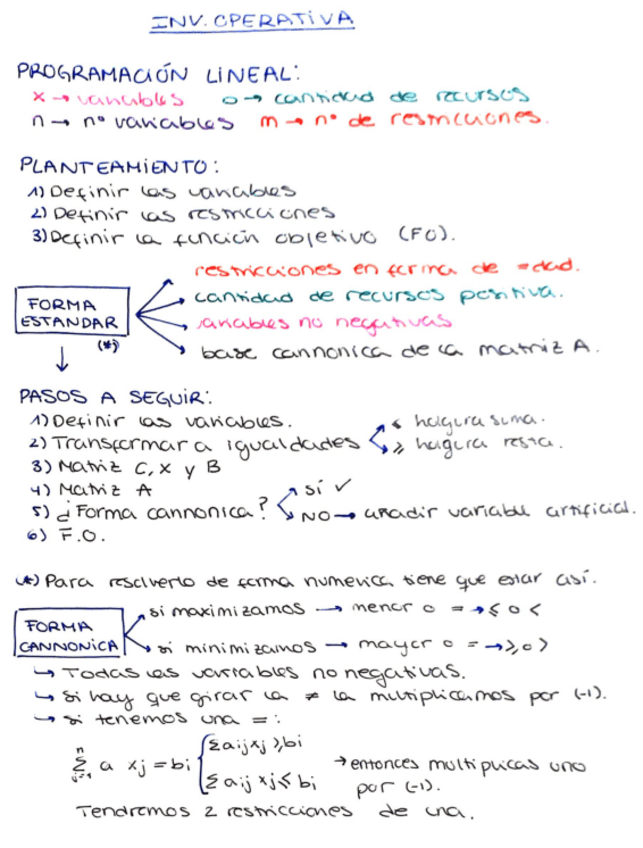 INV. OPERATIVA
PROGRAMACIÓN LINEAL:
x → variables o → cantidad de recursos
n → nº variables m → nº de restricciones.
PLANTEAMIENTO:
1) Definir las variables
2) Definir las restricciones
3) Definir la función objetivo (FO).
restricciones en forma de =dad.
FORMA ESTANDAR (*) → cantidad de recursos positiva.
variables no negativas
base cannonica de la matriz A.
PASOS A SEGUIR:
1) Definir las variables. ≤ holgura suma.
2) Transformar a igualdades ≥ holgura resta.
3) Matriz C, X y B
4) Matriz A sí ✓
5) ¿Forma cannonica? NO → añadir variable artificial.
6) F.O.
(*) Para resolverlo de forma numerica tiene que estar así.
si maximizamos → menor o = → ≤ o <
FORMA CANNONICA
si minimizamos → mayor o = → ≥ o >
↳ Todas las variables no negativas.
↳ Si hay que girar la ≠ la multiplicamos por (-1).
↳ si tenemos una =:
n Σ j=1 a xj = bi { Σaij xj ≥ bi
Σ aij xj ≤ bi → entonces multiplicas uno por (-1).
Tendremos 2 restricciones de una.